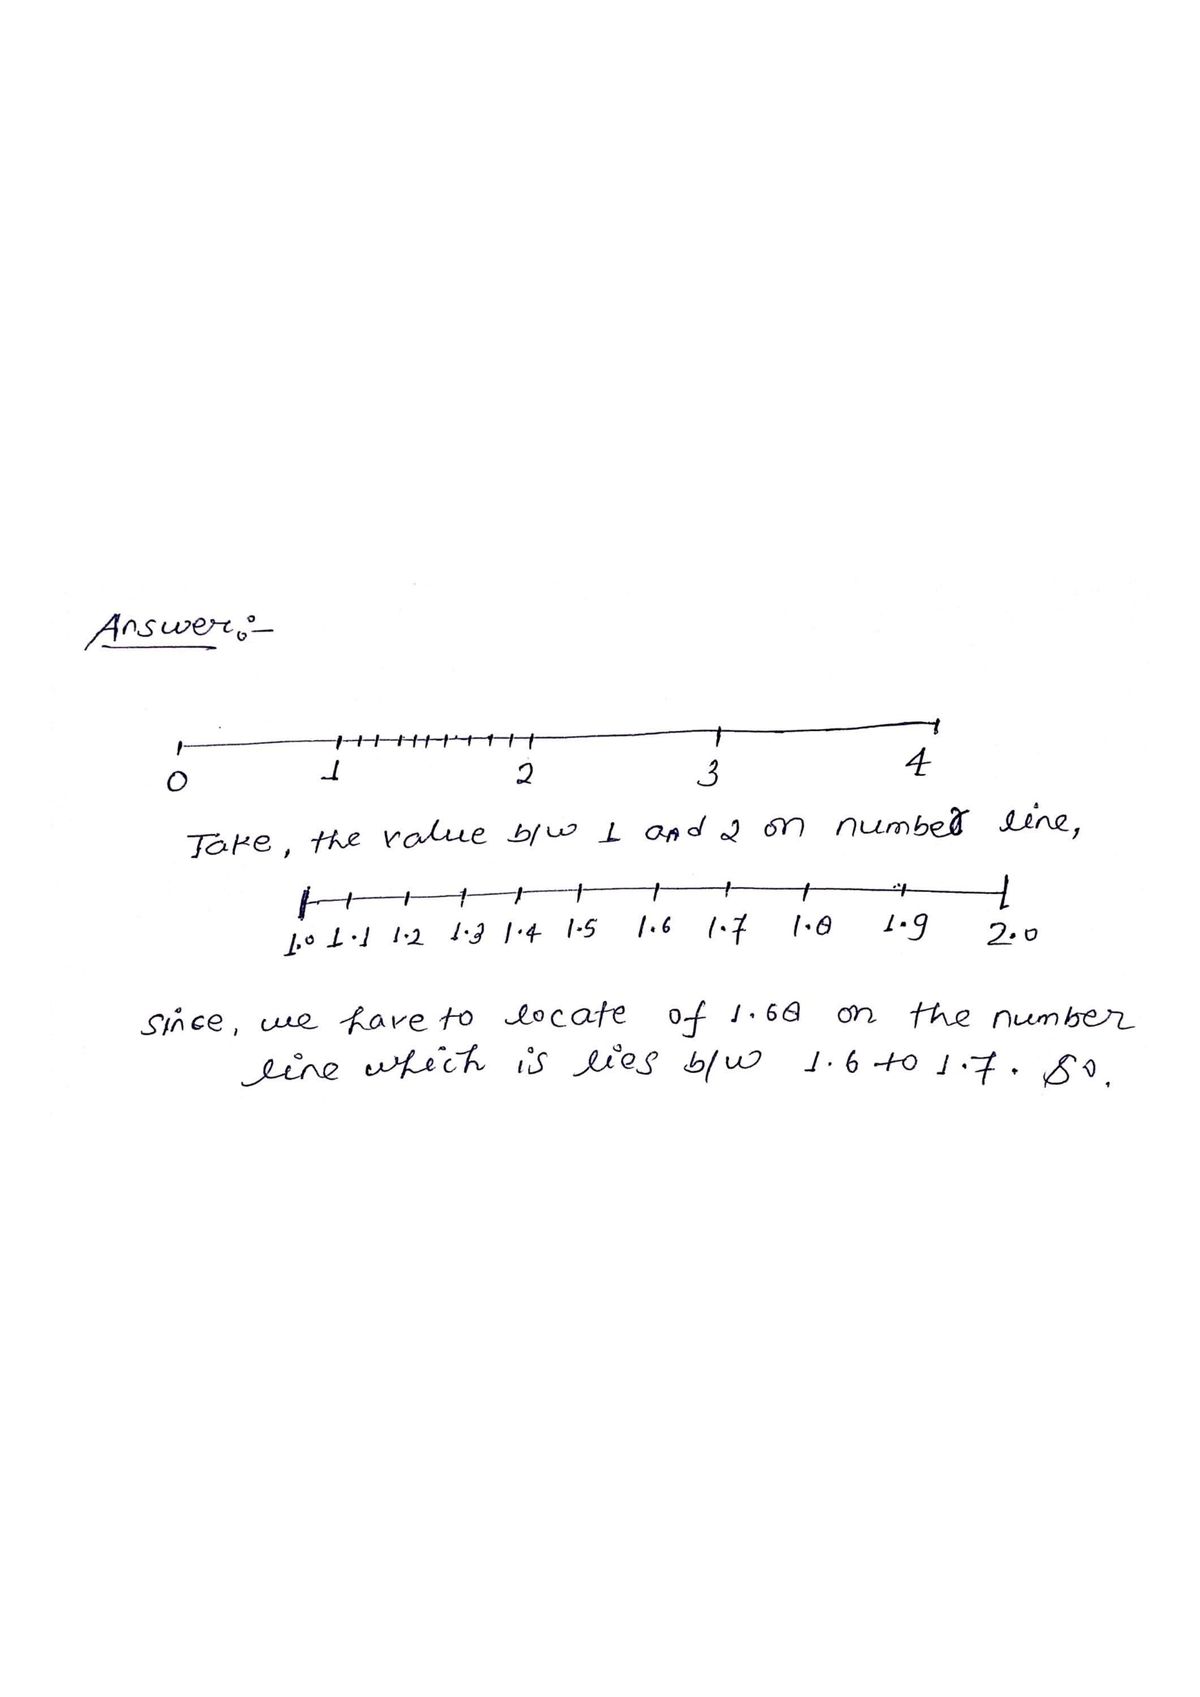 Answer:-
0 1 2 3 4
Take, the value b/w 1 and 2 on number line,
1.0 1.1 1.2 1.3 1.4 1.5 1.6 1.7 1.8 1.9 2.0
since, we have to locate of 1.68 on the number
line which is lies b/w 1.6 to 1.7. So,